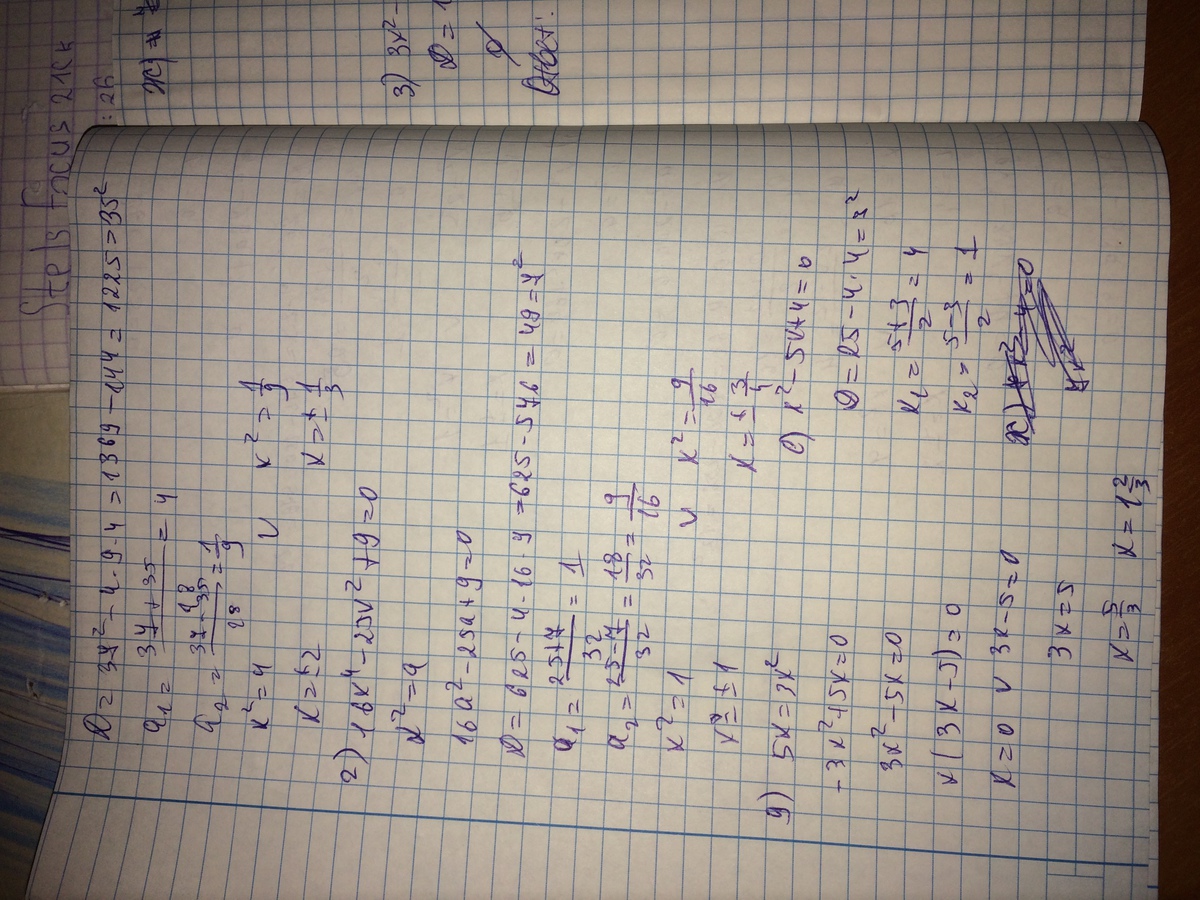 Stels Focus 21ск
: 26
ж)
3) 3x² -
D = 1
Ответ:
D = 37² - 4 · 9 · 4 = 1369 - 144 = 1225 = 35²
a₁ = (37 + 35) / = 4
a₂ = (37 - 35) / 18 = 1/9
x² = 4 v x² = 1/9
x = ±2 x = ± 1/3
2) 16x⁴ - 25x² + 9 = 0
x² = a
16a² - 25a + 9 = 0
D = 625 - 4 · 16 · 9 = 625 - 576 = 49 = 7²
a₁ = (25 + 7) / 32 = 1
a₂ = (25 - 7) / 32 = 18/32 = 9/16
x² = 1 v x² = 9/16
x = ± 1 x = ± 3/4
g) 5x = 3x²
-3x² + 5x = 0
3x² - 5x = 0
x (3x - 5) = 0
x = 0 v 3x - 5 = 0
3x = 5
x = 5/3 x = 1 2/3
e) x² - 5x + 4 = 0
D = 25 - 4 · 4 = 3²
x₁ = (5 + 3) / 2 = 4
x₂ = (5 - 3) / 2 = 1